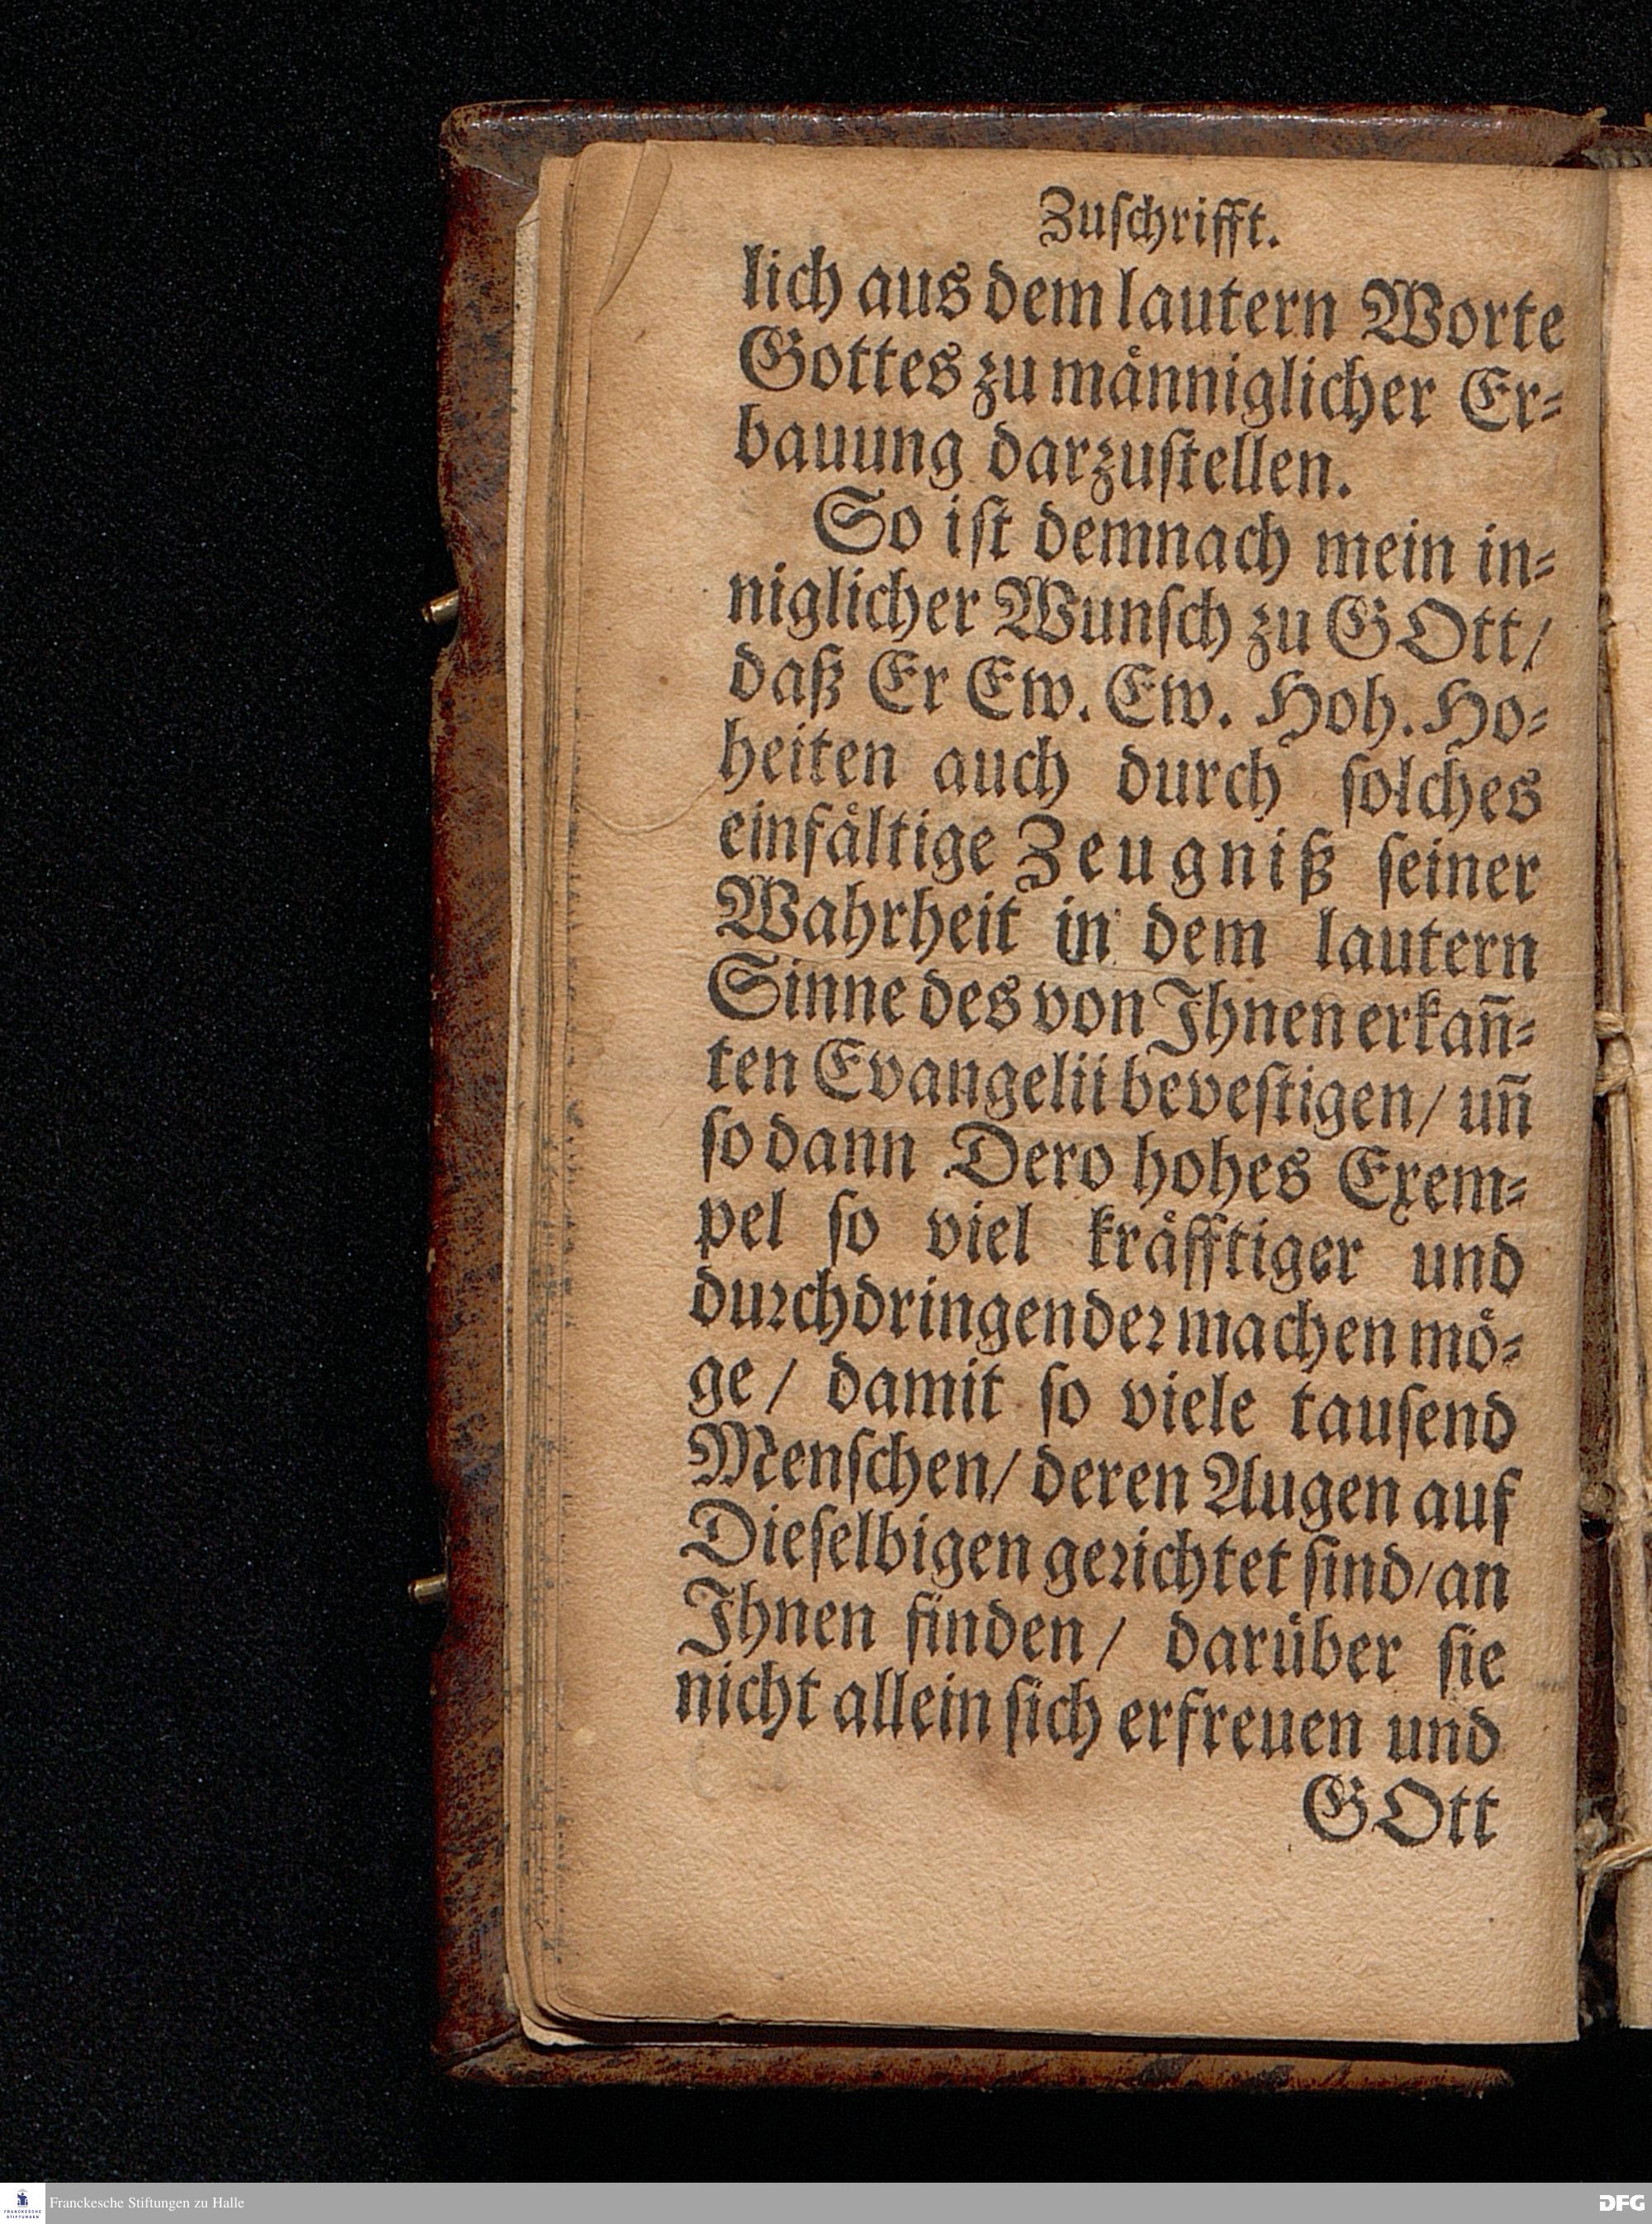 Zuſchrifft.
lich aus dem lautern Worte
Gottes zu maͤnniglicher Er⸗
bauung darzuſtellen.
So iſt demnach mein in⸗
niglicher Wunſch zu GOtt/
daß Er Ew. Ew. Hoh. Ho⸗
heiten auch durch ſolches
einfaͤltige Zeugniß ſeiner
Wahrheit in dem lautern
Sinne des von Ihnen erkan̄⸗
ten Evangelii beveſtigen/ un̄
ſo dann Dero hohes Exem⸗
pel ſo viel kraͤfftiger und
duꝛchdringendeꝛ machen moͤ⸗
ge/ damit ſo viele tauſend
Menſchen/ deren Augen auf
Dieſelbigen geꝛichtet ſind/ an
Ihnen finden/ daruͤber ſie
nicht allein ſich erfreuen und
GOtt
FRANCKESCHE
STIFTUNGEN
Franckesche Stiftungen zu Halle
DFG